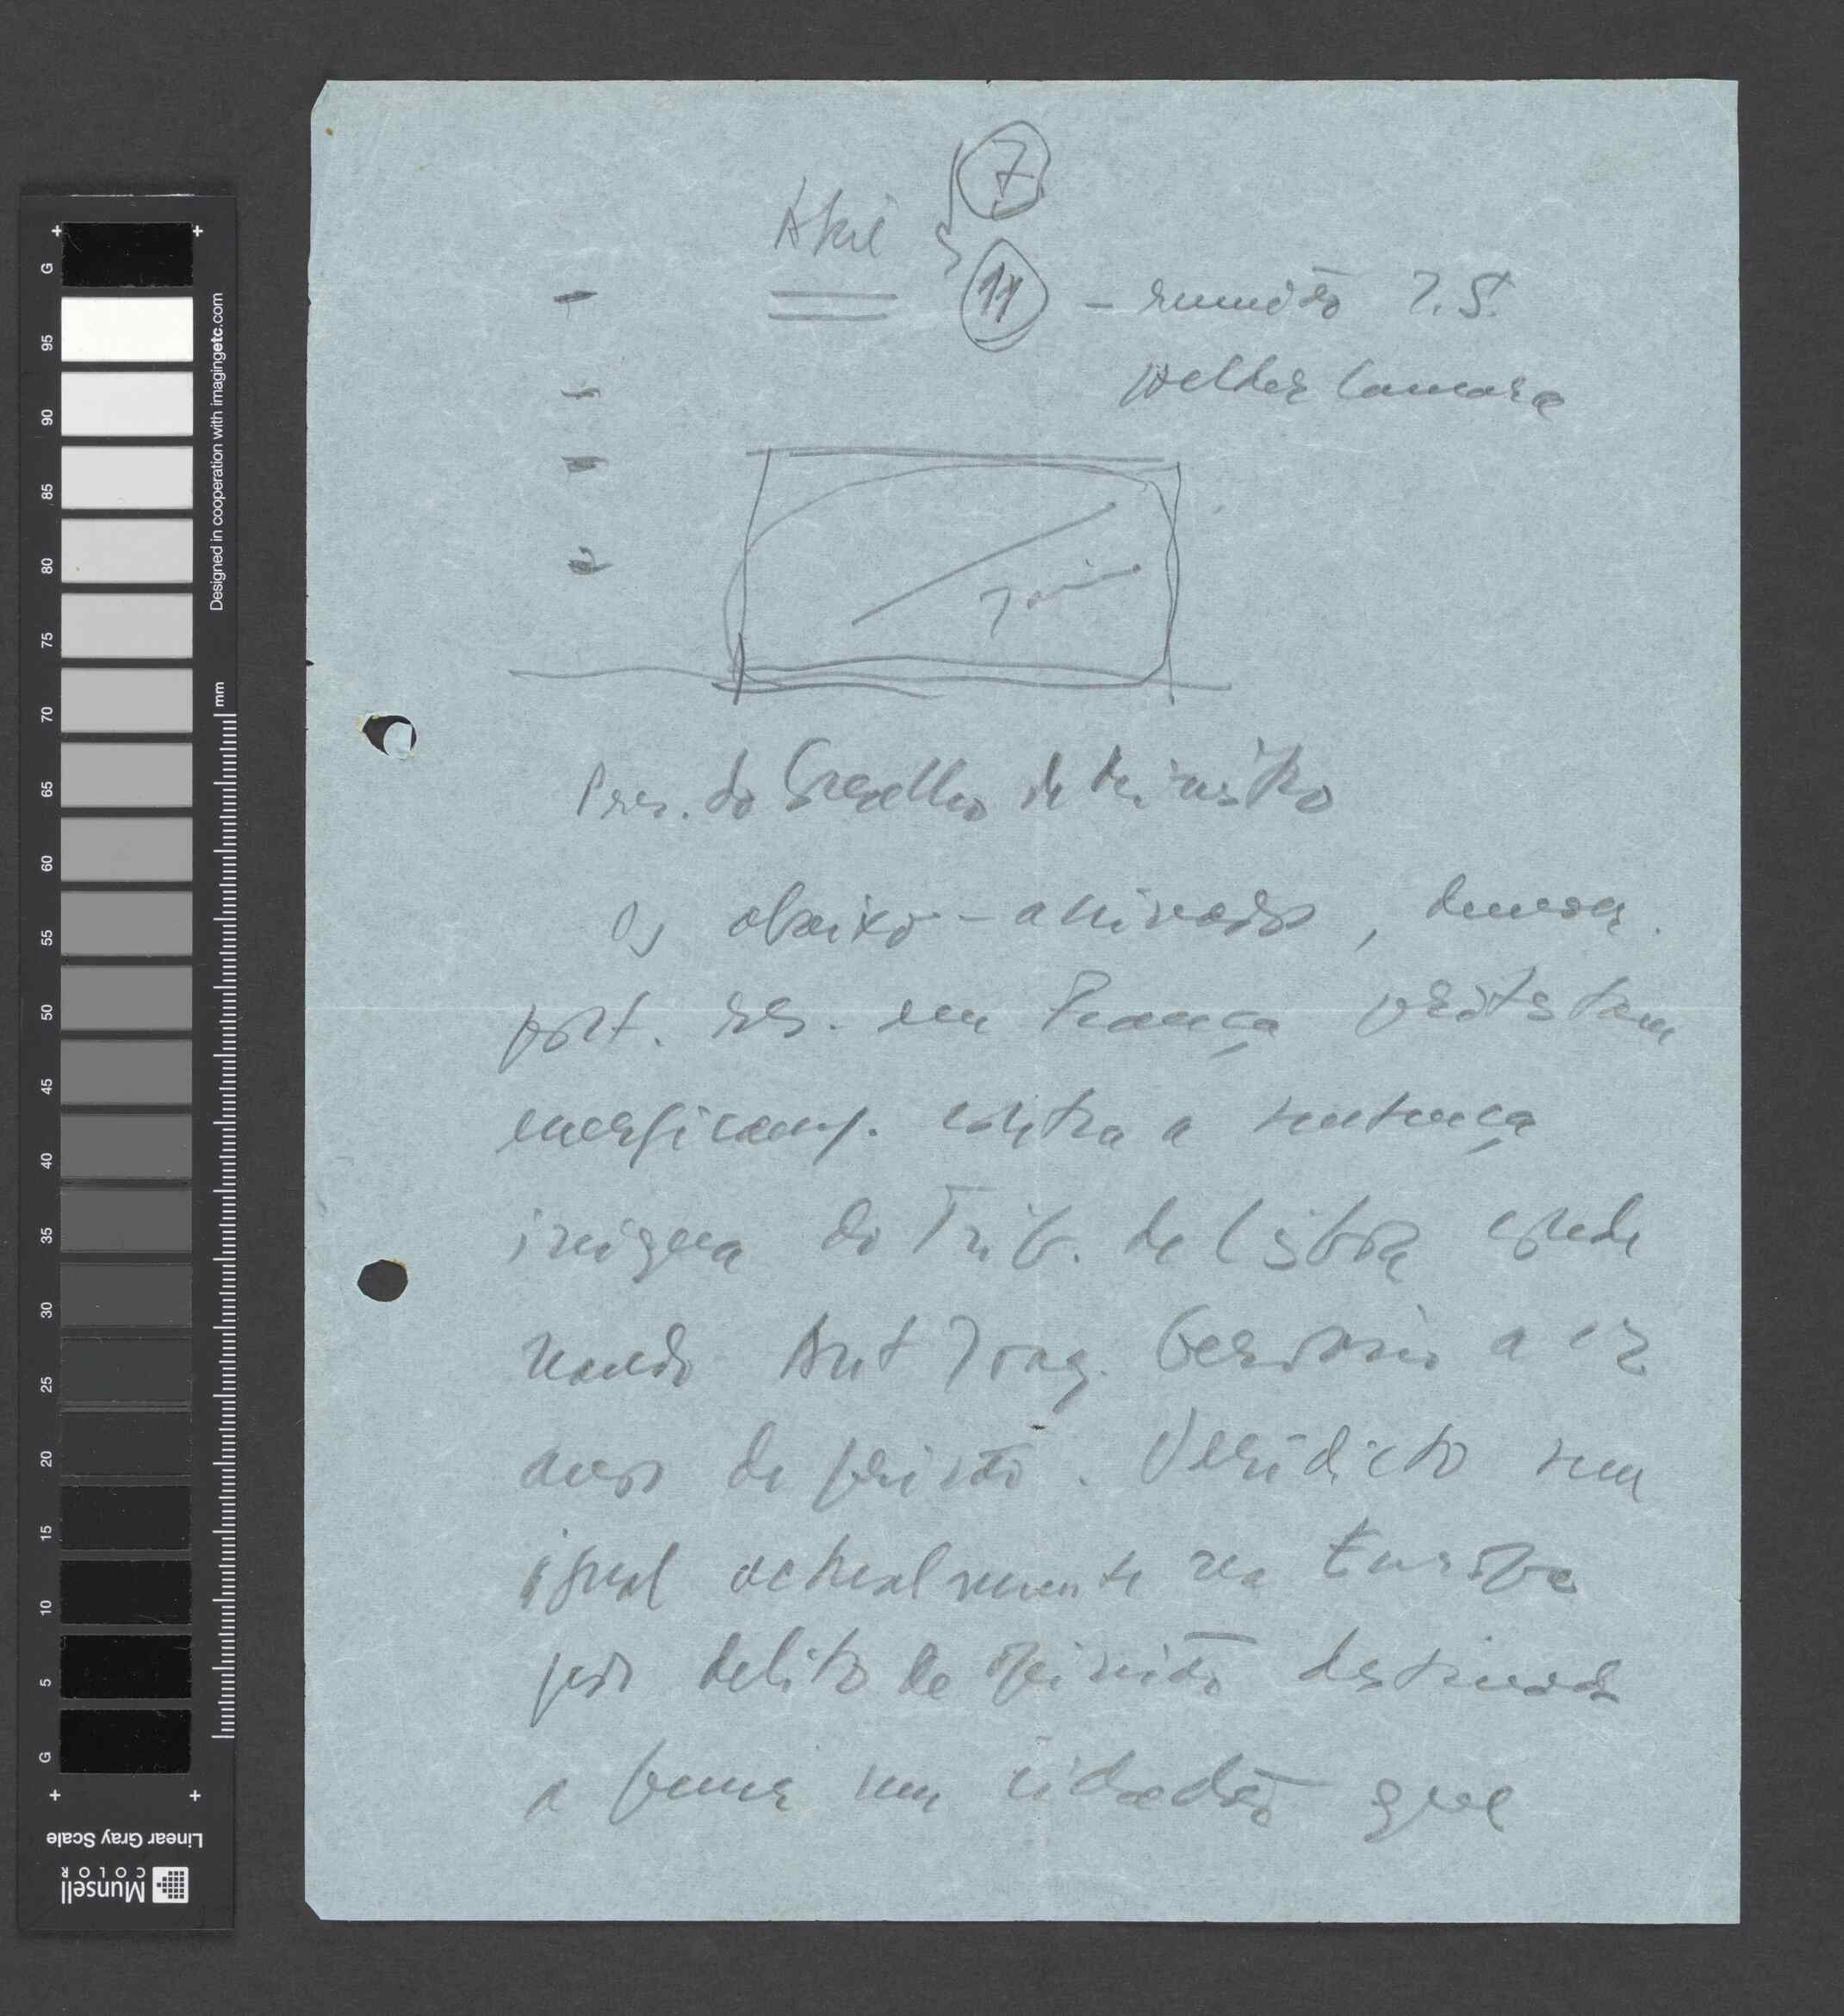 7
Abril
11 - reunião P.S.
Helder Camara
Pres. do Conselho de Ministro
Os abaixo-assinados, democr.
port. res. em França protestam
energicam. contra a sentença
iniqua do Trib. de Lisboa conde
nando Ant Joaq. Gervásio a 12
anos de prisão. Verídicto sem
igual actualmente na Europa
por delito de opinião destinado
a punir um cidadão que
G
95
90
85
80
75
70
65
60
55
50
45
40
35
30
25
20
15
10
5
G
Designed in cooperation with imagingetc.com
mm
Linear Gray Scale
Munsell
COLOR